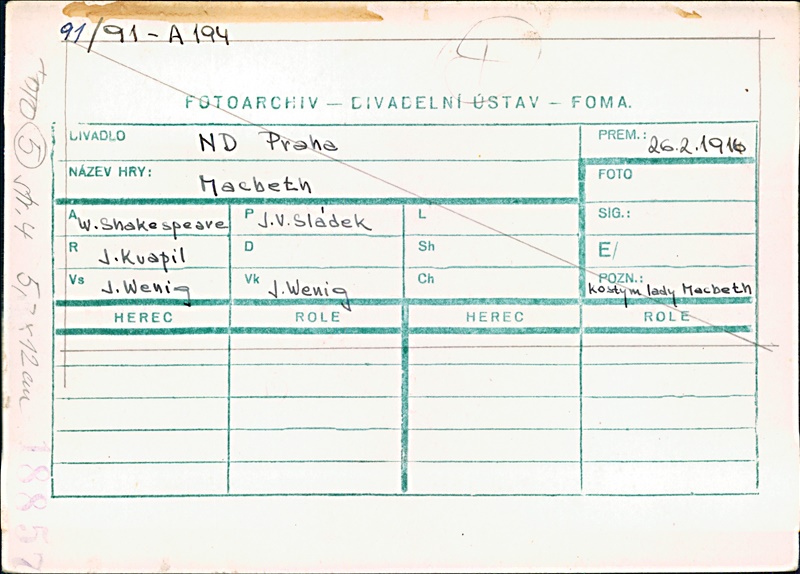 91/91 - A 194
FOTOARCHIV — DIVADELNÍ ÚSTAV — FOMA.
DIVADLO ND Praha
PREM.: 26.2.1916
NÁZEV HRY: Macbeth
FOTO
A W. Shakespeare
P J.V. Sládek
L
SIG.:
R J. Kvapil
D
Sh
E/
Vs J. Wenig
Vk J. Wenig
Ch
POZN.: kostym lady Macbeth
HEREC ROLE HEREC ROLE
5 str. 4 5,7 x 12 cm
18857